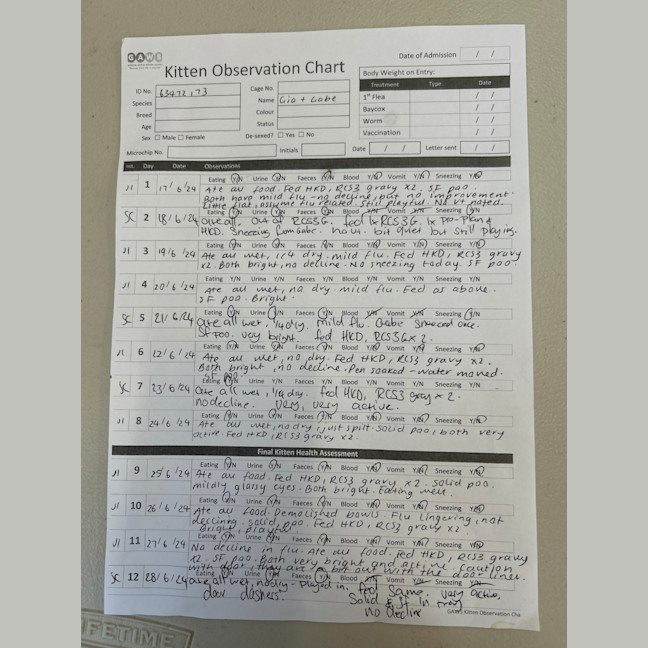 GAWS
Kitten Observation Chart
Date of Admission / /
ID No. 65472, 73
Species
Breed
Age
Sex Male Female
Microchip No.
Cage No.
Name Gio + Gabe
Colour
Status
De-sexed? Yes No
Initials
Body Weight on Entry:
Treatment Type Date
1st Flea / /
Baycox / /
Worm / /
Vaccination / /
Date / / Letter sent / /
Init. Day Date Observations
Eating Y/N Urine Y/N Faeces Y/N Blood Y/N Vomit Y/N Sneezing Y/N
JI 1 17/6/24 Ate all food. Fed HKD, RCS3 gravy x2. SF poo.
Both have mild flu - no decline, but no improvement.
Little flat, assume flu related. Still playful. No V+ noted.
Eating Y/N Urine Y/N Faeces Y/N Blood Y/N Vomit Y/N Sneezing Y/N
SC 2 18/6/24 ate all, out of RCS3G. fed 1x RCS3G. 1x pro-plan &
HKD. Sneezing from Gabe. bit quiet but still playing.
Eating Y/N Urine Y/N Faeces Y/N Blood Y/N Vomit Y/N Sneezing Y/N
JI 3 19/6/24 Ate all wet, 1/4 dry. mild flu. Fed HKD, RCS3 gravy
x2. Both bright, no decline. No sneezing today. SF poo
Eating Y/N Urine Y/N Faeces Y/N Blood Y/N Vomit Y/N Sneezing Y/N
JI 4 20/6/24 Ate all wet, no dry. mild flu. Fed as above.
SF poo. Bright.
Eating Y/N Urine Y/N Faeces Y/N Blood Y/N Vomit Y/N Sneezing Y/N
SC 5 21/6/24 ate all wet, 1/4 dry. mild flu. Gabe sneezed once.
SF poo. very bright. fed HKD, RCS3G x 2.
Eating Y/N Urine Y/N Faeces Y/N Blood Y/N Vomit Y/N Sneezing Y/N
JI 6 22/6/24 Ate all wet, no dry. Fed HKD, RCS3 gravy x2.
Both bright, no decline. Pen soaked - water moved.
SF poo
Eating Y/N Urine Y/N Faeces Y/N Blood Y/N Vomit Y/N Sneezing Y/N
SC 7 23/6/24 ate all wet, 1/4 dry. fed HKD, RCS3 gravy x 2.
no decline. very, very active.
Eating Y/N Urine Y/N Faeces Y/N Blood Y/N Vomit Y/N Sneezing Y/N
JI 8 24/6/24 Ate all wet, no dry, just spilt. solid poo, both very
active. Fed HKD, RCS3 gravy x2.
Final Kitten Health Assessment
Eating Y/N Urine Y/N Faeces Y/N Blood Y/N Vomit Y/N Sneezing Y/N
JI 9 25/6/24 Ate all food. Fed HKD, RCS3 gravy x2. solid poo.
mildly glassy eyes. Both bright. Eating well.
Eating Y/N Urine Y/N Faeces Y/N Blood Y/N Vomit Y/N Sneezing Y/N
JI 10 26/6/24 Ate all food. Demolished bowls. Flu lingering, not
declining. solid poo. Fed HKD, RCS3 gravy x2
Bright, playful
Eating Y/N Urine Y/N Faeces Y/N Blood Y/N Vomit Y/N Sneezing Y/N
JI 11 27/6/24 No decline in flu. Ate all food. Fed HKD, RCS3 gravy
x2. SF poo. Both very bright and active. Caution
with door, they are a bit out with the door lines.
Eating Y/N Urine Y/N Faeces Y/N Blood Y/N Vomit Y/N Sneezing Y/N
SC 12 28/6/24 ate all wet, no dry - played in. fed same. very active,
door dashers. Solid & SF in tray
no decline
GAWS Kitten Observation Cha
LIFETIME